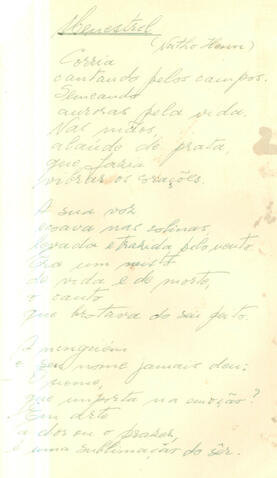 Menestrel
(Natho Henn)
Corria
cantando pelos campos.
Semeando
auroras pela vida.
Nas mãos,
alaúde de prata,
que fazia
vibrar os corações.
A sua voz
ecoava nas colinas
levada e trazida pelo vento.
Era um misto
de vida e de morte,
o canto
que brotava do seu peito.
A ninguém
o seu nome jamais deu:
O nome,
que importa na emoção?
Em arte
a dor ou o prazer,
é uma sublimação do sêr.